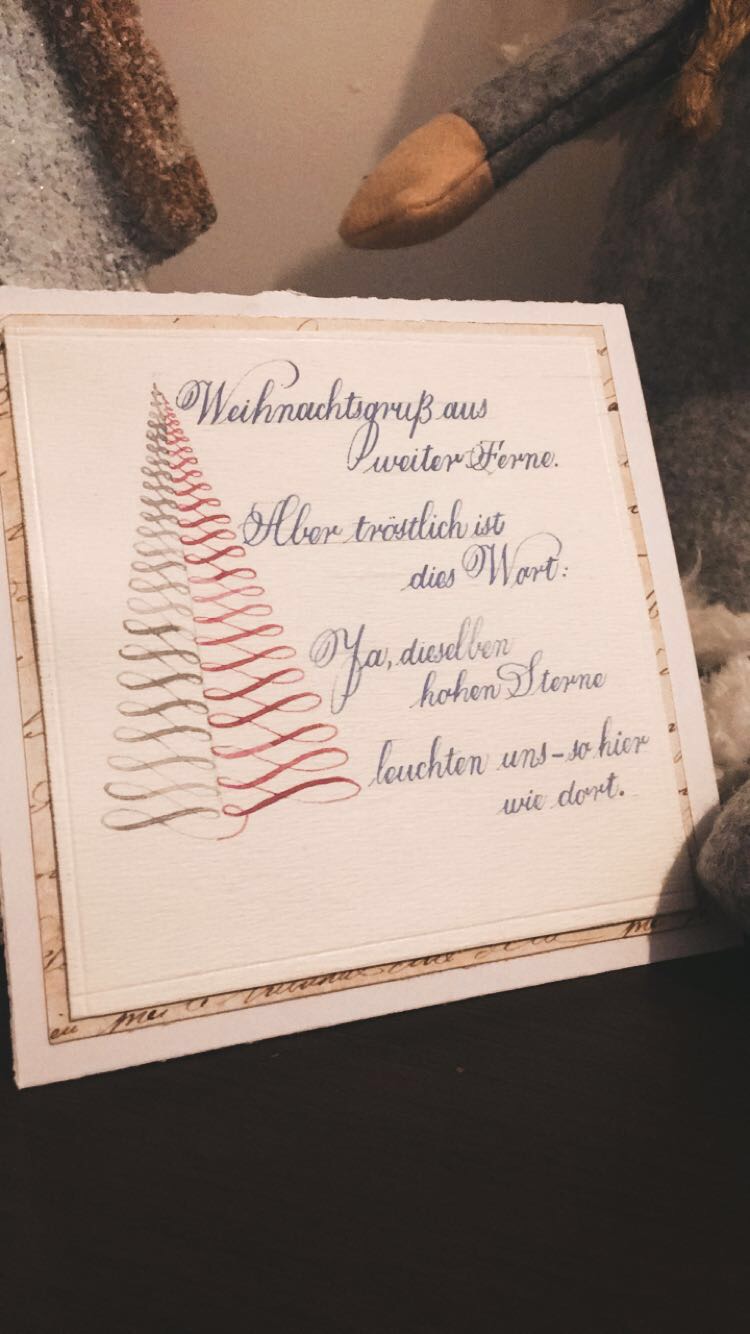 Weihnachtsgruß aus
weiter Ferne.
Aber tröstlich ist
dies Wort:
Ja, dieselben
hohen Sterne
leuchten uns – so hier
wie dort.